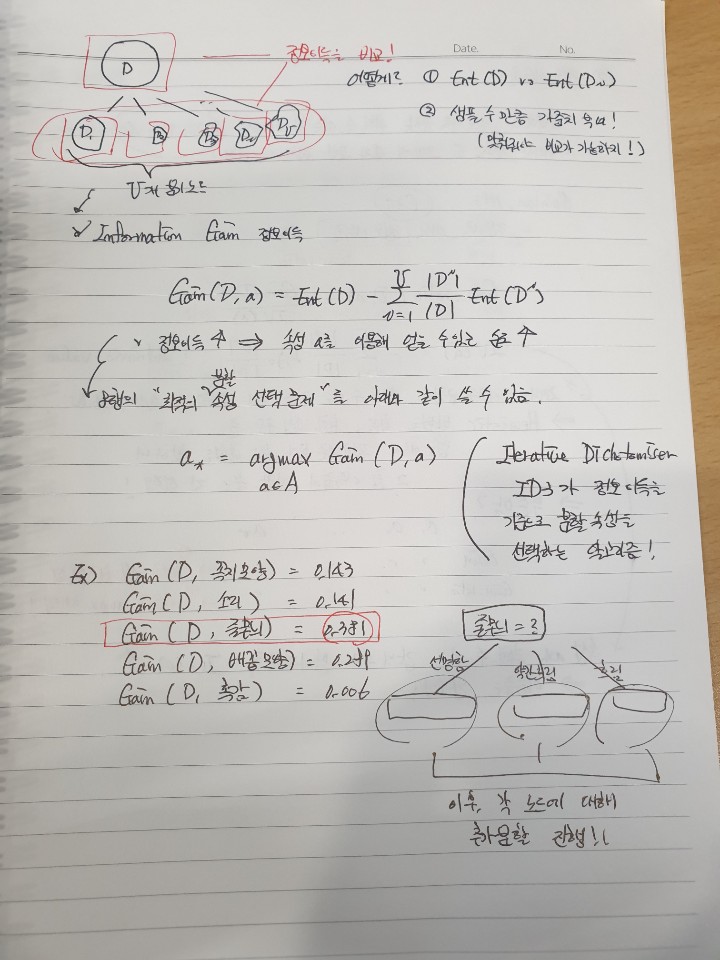 Date.
No.
D
정보이득을 비교!
어떻게? ① Ent(D) vs Ent(Dᵥ)
② 샘플 수 만큼 가중치 욱여!
(맞춰줘야 비교가 가능하지!)
D₁ D₂ D₃ Dᵥ
V개 분기노드
Information Gain 정보이득
Gain(D, a) = Ent(D) - Σ_{v=1}^{V} |Dᵛ|/|D| Ent(Dᵛ)
정보이득 ↑ ⇒ 속성 a를 이용해 얻을 수 있는 순도 ↑
"최적의 분할 속성 선택 문제"를 아래와 같이 쓸 수 있음.
a* = argmax Gain(D, a)
a∈A
Iterative Dichotomiser
ID3가 정보이득을
기준으로 분할 속성을
선택하는 알고리즘!
Ex) Gain(D, 꼭지모양) = 0.143
Gain(D, 소리) = 0.141
Gain(D, 줄무늬) = 0.381
Gain(D, 배꼽모양) = 0.289
Gain(D, 촉감) = 0.006
줄무늬 = ?
선명함 약간흐림 흐림
이후, 각 노드에 대해
추가분할 진행!!